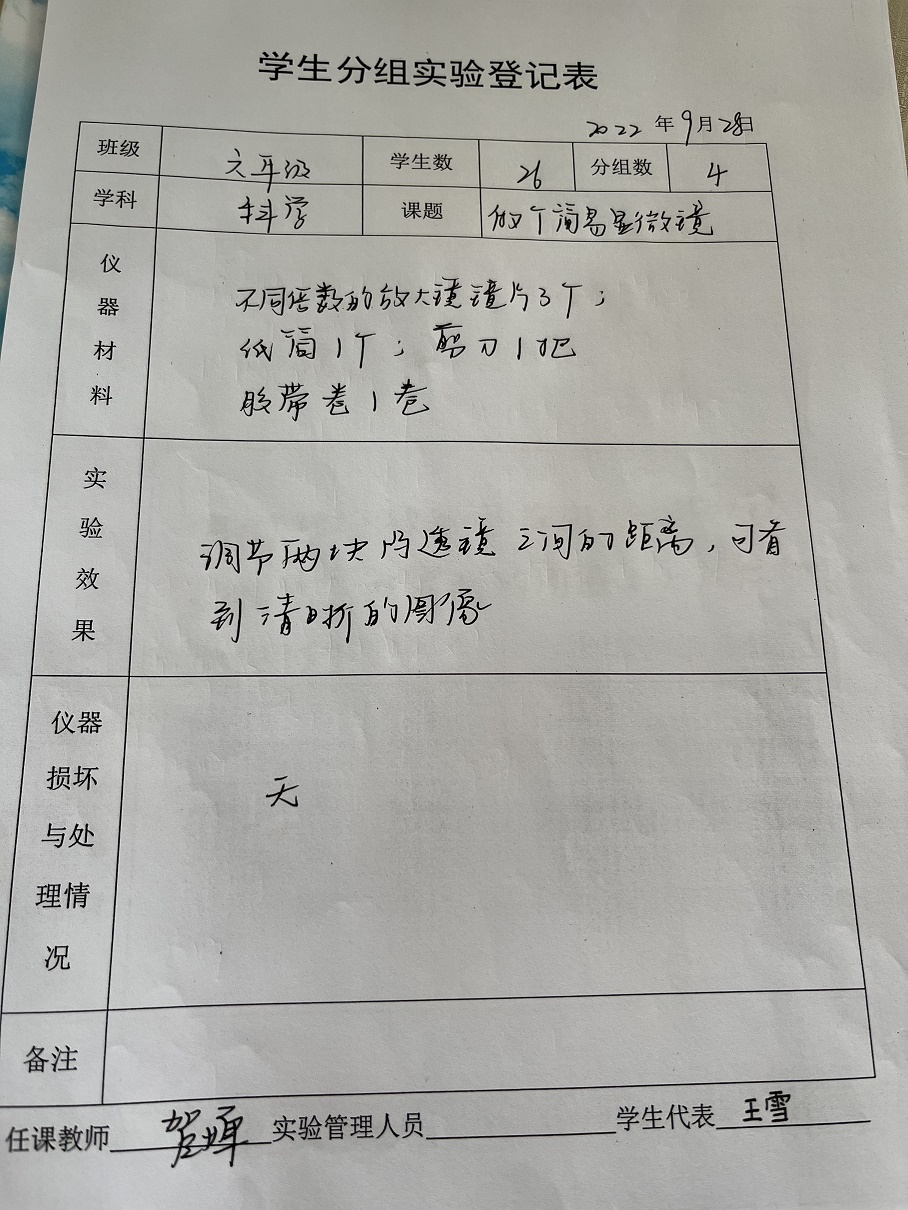 学生分组实验登记表
2022年9月28日
班级 六年级 学生数 26 分组数 4
学科 科学 课题 做个简易显微镜
仪器材料
不同倍数的放大镜镜片3个;
纸筒1个;剪刀1把
胶带卷1卷
实验效果
调节两块凸透镜之间的距离,可看
到清晰的图像
仪器损坏与处理情况
无
备注
任课教师 贺 实验管理人员 学生代表 王雪